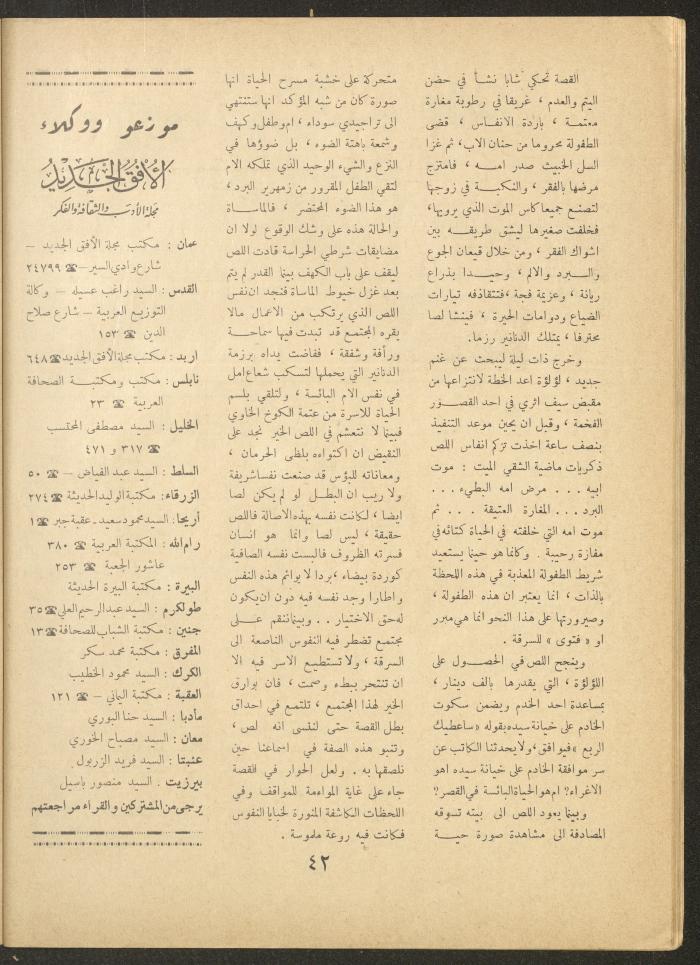 القصة تحكي شابا نشأ في حضن
اليتم والعدم ، غريقا في رطوبة مغارة
معتمة ، باردة الانفاس ، قضى
الطفولة محروما من حنان الاب، ثم غزا
السل الخبيث صدر امه ، فامتزج
مرضها بالفقر ، والنكبة في زوجها
لتصنع جميعا كاس الموت الذي يرويها،
فخلفت صغيرها ليشق طريقه بين
اشواك الفقر ، ومن خلال قيعان الجوع
والبرد والالم ، وحيدا بذراع
ريانة ، وعزيمة فجة ، فتتقاذفه تيارات
الضياع ودوامات الحيرة ، فينشا لصا
محترفا ، يمتلك الدنانير رزما.
وخرج ذات ليلة ليبحث عن غنم
جديد ، لؤلؤة اعد الخطة لانتزاعها من
مقبض سيف اثري في احد القصور
الفخمة ، وقبل ان يحين موعد التنفيذ
بنصف ساعة اخذت تزكم انفاس اللص
ذكريات ماضية الشقي الميت : موت
ابيه . . . مرض امه البطيء . . .
البرد . . . المغارة العتيقة . . . ثم
موت امه التي خلفته في الحياة كتائه في
مفازة رحيبة . وكانما هو حينما يستعيد
شريط الطفولة المعذبة في هذه اللحظة
بالذات ، انما يعتبر ان هذه الطفولة ،
وصيرورتها على هذا النحو انما هي مبرر
او « فتوى » للسرقة .
وينجح اللص في الحصول على
اللؤلؤة ، التي يقدرها بالف دينار ،
بمساعدة احد الخدم ويضمن سكوت
الخادم على خيانة سيده بقوله « ساعطيك
الربع » فيوافق، ولا يحدثنا الكاتب عن
سر موافقة الخادم على خيانة سيده اهو
الاغراء؟ ام هو الحياة البائسة في القصر؟
وبينما يعود اللص الى بيته تسوقه
المصادفة الى مشاهدة صورة حية
متحركة على خشبة مسرح الحياة انها
صورة كان من شبه المؤكد انها ستنتهي
الى تراجيدي سوداء ، ام وطفل وكهف
وشمعة باهتة الضوء ، بل ضوؤها في
النزع والشيء الوحيد الذي تملكه الام
لتقي الطفل المقرور من زمهرير البرد ،
هو هذا الضوء المحتضر ، فالماساة
والحالة هذه على وشك الوقوع لولا ان
مضايقات شرطي الحراسة قادت اللص
ليقف على باب الكهف بينما القدر لم يتم
بعد غزل خيوط الماساة فنجد ان نفس
اللص الذي يرتكب من الاعمال مالا
يقره المجتمع قد تبدت فيها سماحة
ورأفة وشفقة ، ففاضت يداه برزمة
الدنانير التي يحملها لتسكب شعاع امل
في نفس الام البائسة ، ولتلقي بلسم
الحياة للاسرة من عتمة الكوخ الخاوي
فبينما لا نتعشم في اللص الخير نجد على
النقيض ان اكتواءه بلظى الحرمان ،
ومعاناته للبؤس قد صنعت نفسا شريفة
ولا ريب ان البطل لو لم يكن لصا
ايضا ، لكانت نفسه بهذه الاصالة فاللص
حقيقة ، ليس لصا وانما هو انسان
قسرته الظروف فالبست نفسه الصافية
كوردة بيضاء ، بردا لا يوائم هذه النفس
واطارا وجد نفسه فيه دون ان يكون
له حق الاختيار . . وبينما ننقم على
مجتمع تضطر فيه النفوس الناصعة الى
السرقة ، ولا تستطيع الاسر فيه الا
ان تنتحر ببطء وصمت ، فان بوارق
الخير لهذا المجتمع ، تلتمع في احداق
بطل القصة حتى لننسى انه لص ،
وتنبو هذه الصفة في اسماعنا حين
نلصقها به . ولعل الحوار في القصة
جاء على غاية المواءمة للمواقف وفي
اللحظات الكاشفة المنورة لخبايا النفوس
فكانت فيه روعة ملموسة .
موزعو ووكلاء
الأفق الجديد
مجلة الأدب والثقافة والفكر
عمان : مكتب مجلة الأفق الجديد –
شارع وادي السير – ☎ ٢٤٧٩٩
القدس : السيد راغب عسيله – وكالة
التوزيع العربية – شارع صلاح
الدين ☎ ١٥٣
اربد : مكتب مجلة الأفق الجديد ☎ ٦٤٨
نابلس : مكتب ومكتبة الصحافة
العربية ☎ ٢٣
الخليل : السيد مصطفى المحتسب
☎ ٣١٧ و ٤٧١
السلط : السيد عبد الفياض – ☎ ٥٠
الزرقاء: مكتبة الوليد الحديثة ☎ ٢٧٤
أريحا : السيد محمود سعيد - عقبة جبر ☎ ١
رام الله : المكتبة العربية ☎ ٣٨٠
عاشور الجعبة ☎ ٢٥٣
البيرة : مكتبة البيرة الحديثة
طولكرم : السيد عبد الرحيم العلي ☎ ٣٥
جنين : مكتبة الشباب للصحافة ☎ ١٣
المفرق : مكتبة محمد سكر
الكرك : السيد محمود الخطيب
العقبة : مكتبة اليماني – ☎ ١٢١
مأدبا : السيد حنا البوري
معان : السيد مصباح الخوري
عنبتا : السيد فريد الزربول .
بيرزيت . السيد منصور باسيل
يرجى من المشتركين والقراء مراجعتهم
٤٢